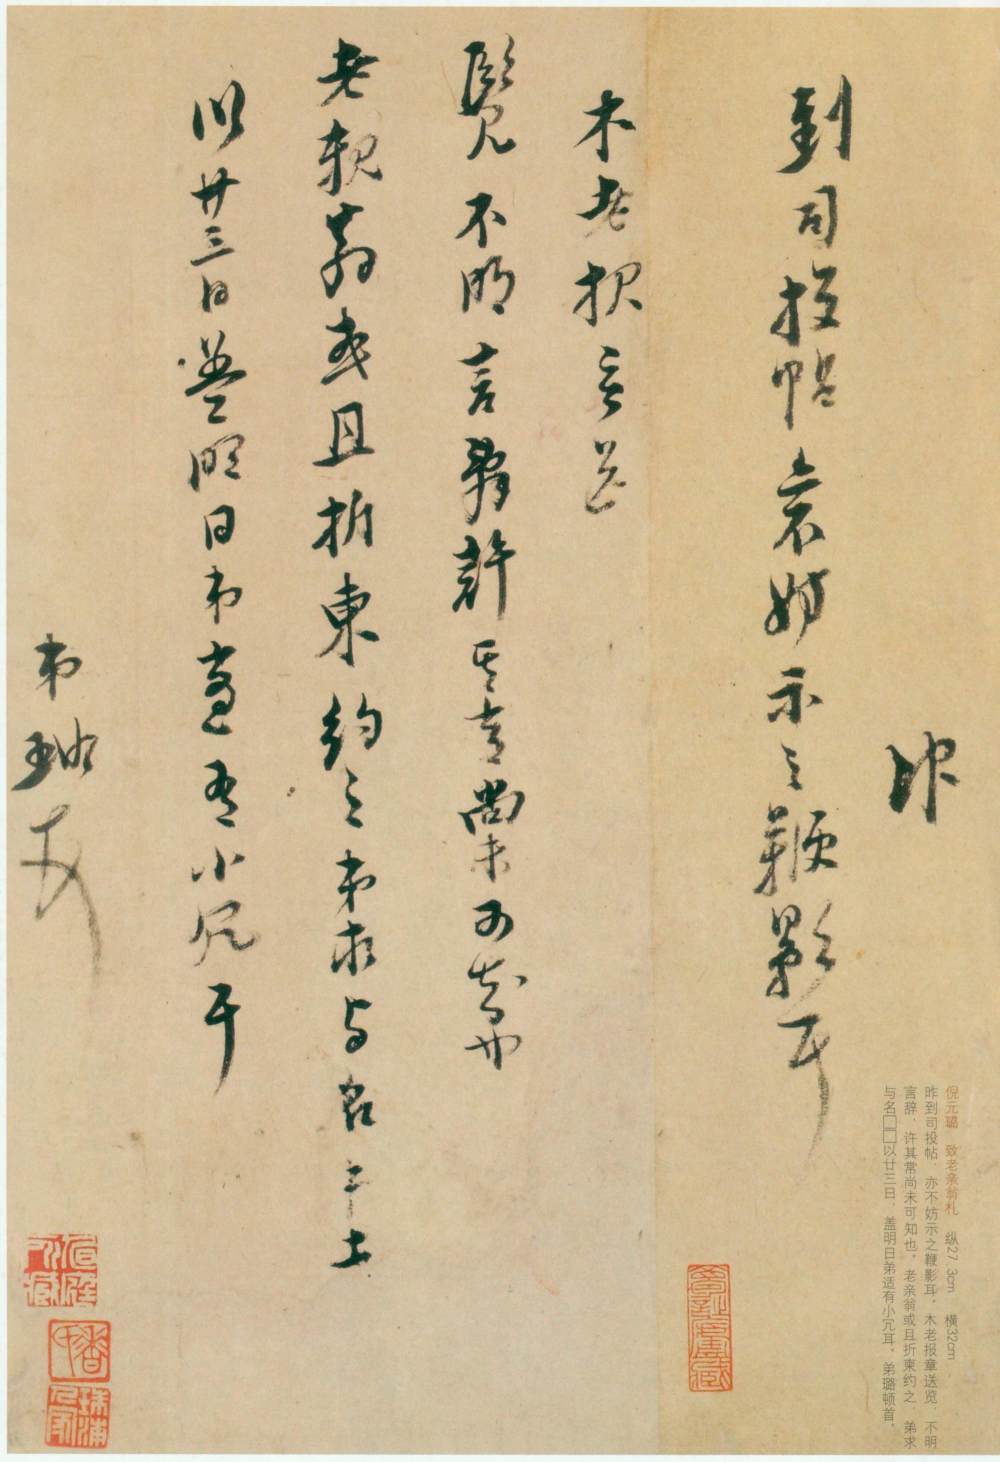 昨
到司投帖亦不妨示之鞭影耳
木老报 送
覧不明言辭許其 尚未可知也
老親翁或且折柬約之弟求与名
以廿三日盖明日弟適有小冗耳
弟璐
倪元璐 致老亲翁札 纵27.3cm 横32cm
昨到司投帖，亦不妨示之鞭影耳。木老报章送览，不明
言辞，许其常尚未可知也，老亲翁或且折柬约之，弟求
与名□□以廿三日，盖明日弟适有小冗耳，弟璐顿首。